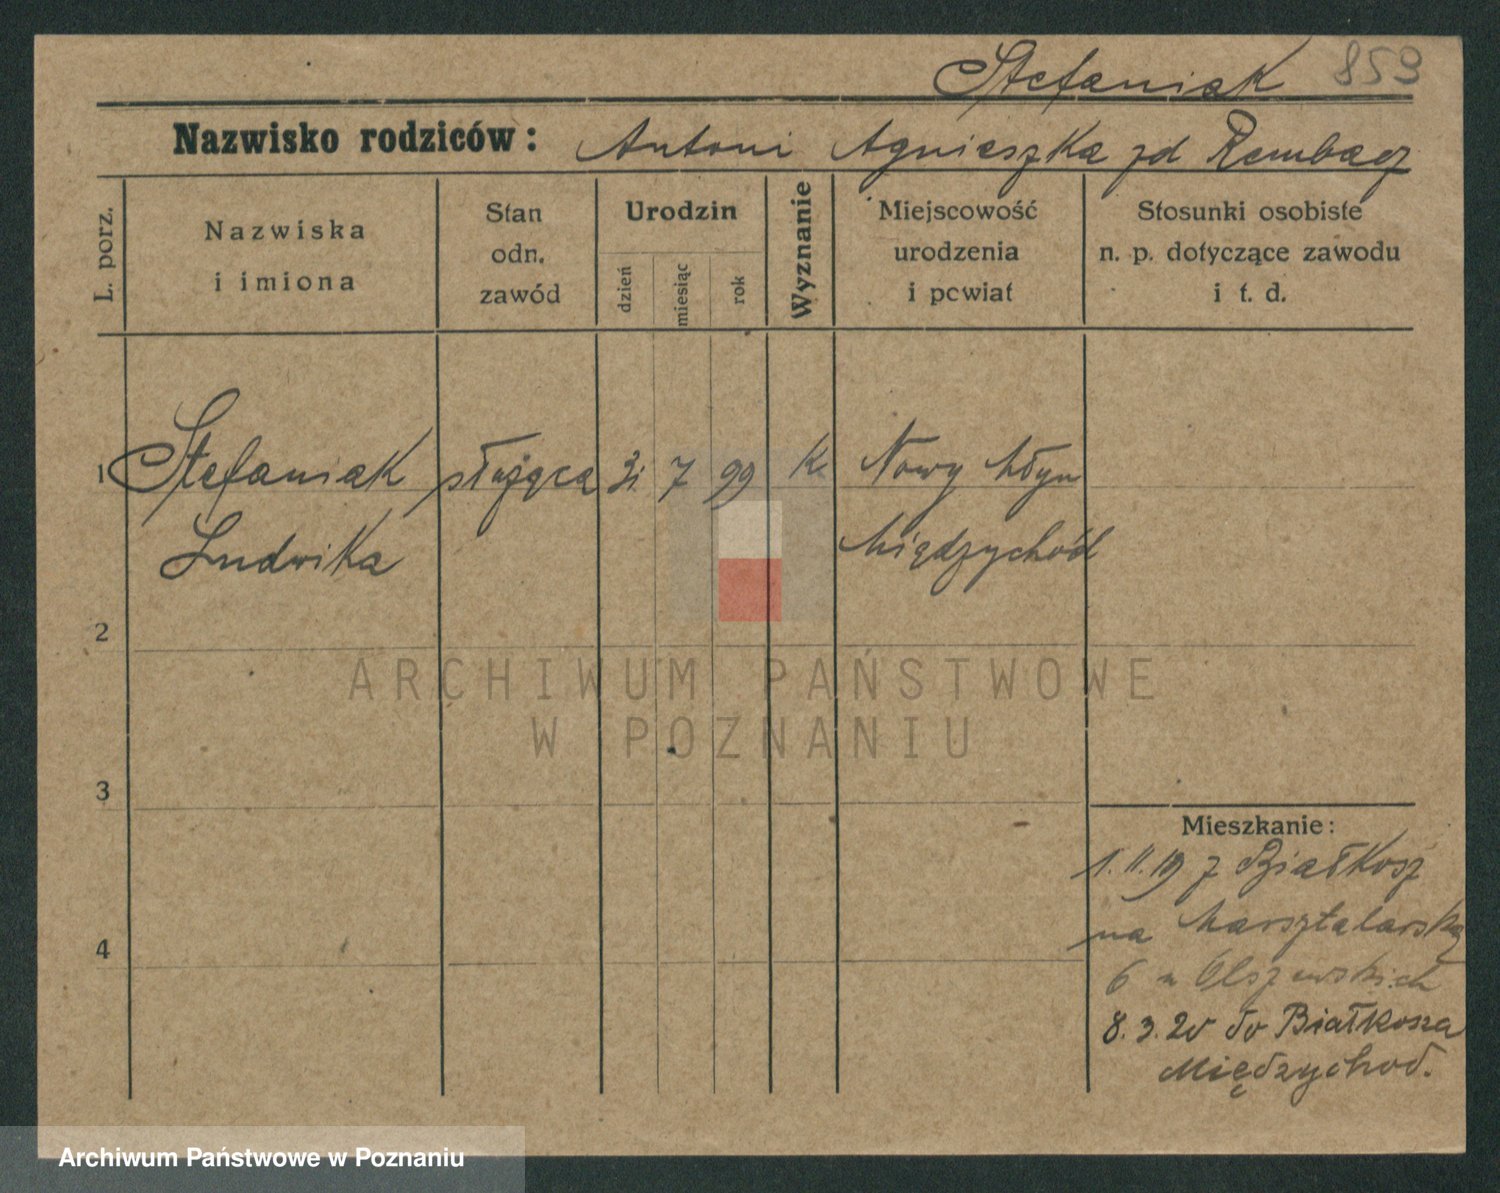 Stefaniak 859
Nazwisko rodziców: Antoni Agnieszka zd Rembacz
L. porz.
Nazwiska
i imiona
Stan
odn.
zawód
Urodzin
dzień
miesiąc
rok
Wyznanie
Miejscowość
urodzenia
i powiat
Stosunki osobiste
n. p. dotyczące zawodu
i t. d.
1 Stefaniak służąca 31. 7 99 K. Nowy Młyn
Ludwika Międzychód
2
ARCHIWUM PAŃSTWOWE
W POZNANIU
3
Mieszkanie:
1.11.19 z Białkosz
na Marsztalarską
4
6 u Olszewskich
8.3.20 do Białkosza
Międzychod.
Archiwum Państwowe w Poznaniu